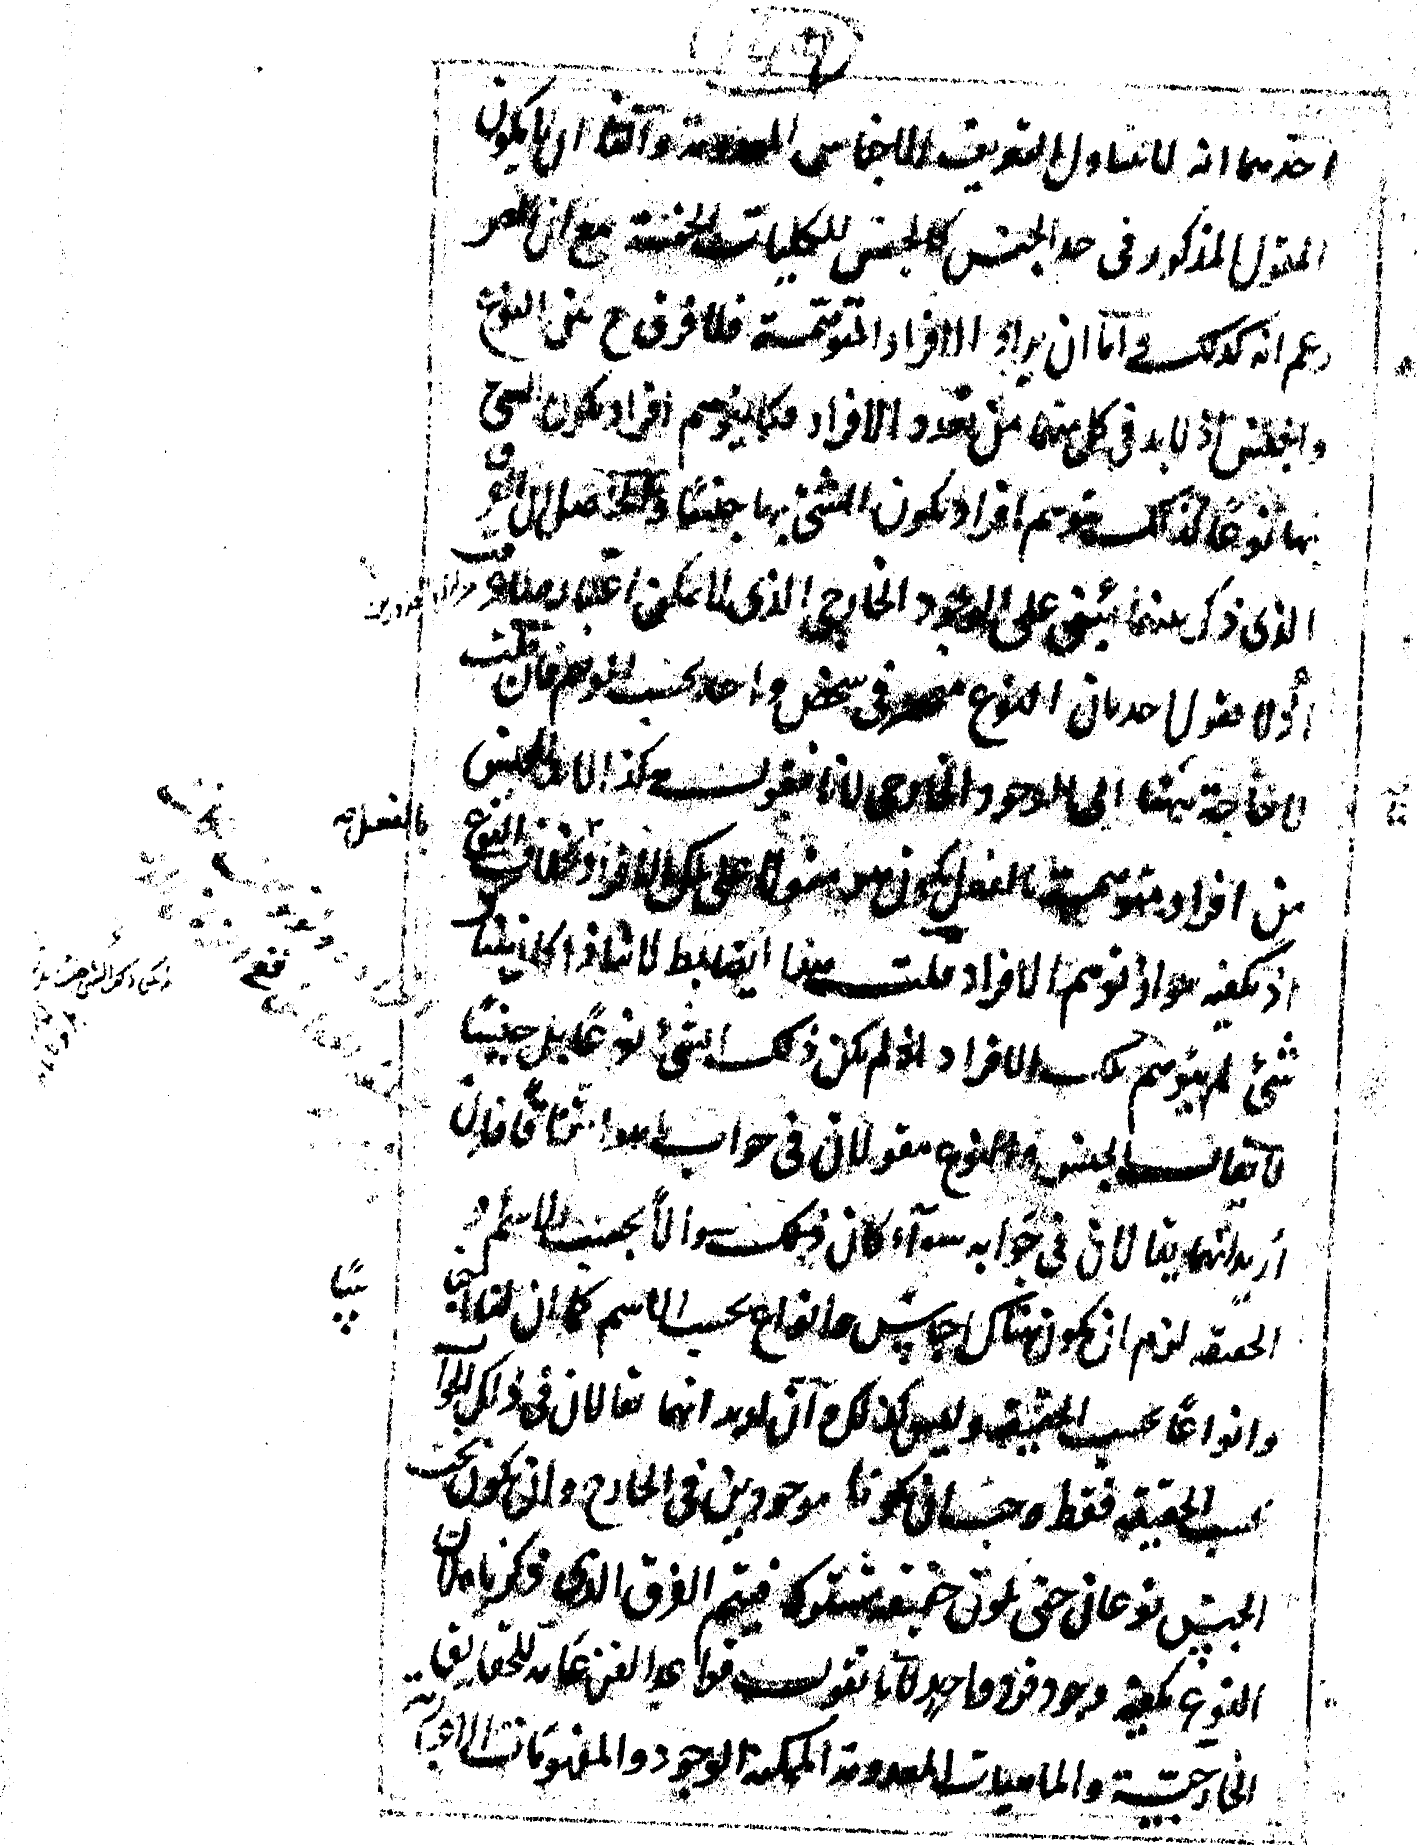 احدهما انه لا يتناول التعريف للاجناس المعدومة وآلفا ان لا يكون
المقول المذكور في حد الجنس كالجنس للكليات الخمسة مع ان المص
زعم انه كذلك واما ان يراد الافراد المتوهمة فلا فرق ح بين النوع
والجنس اذ لا بد في كل منهما من تعدد الافراد فكما يتوهم افراد يكون الشئ
بها نوعا كذلك يتوهم افراد يكون الشئ بها جنسا والحاصل ان الفرق
الذي ذكر بينهما يبتنى على الوجود الخارجي الذي لا يمكن اعتباره
اذ لا يقول احد بان النوع منحصر في شخص واحد بحسب التوهم فان قلت
لا حاجة بهما الى الوجود الخارجي لانا نقول هكذا لا بد للجنس
من افراد متوهمة بالفعل يكون هو مقولا على تلك الافراد بخلاف النوع
اذ يكفيه جواز توهم الافراد قلت هذا ايضا باطل لانا اذا
شئ لم يتوهم تلك الافراد لم يكن ذلك الشئ نوعا بل جنسا
لا يقال الجنس والنوع مقولان في جواب ما هو اتفاقا فان
اريد انهما يقالان في جوابه سواء كان ذلك سوالا بحسب الاسم او
الحقيقة لزم ان يكون هناك اجناس وانواع بحسب الاسم كما ان لنا اجناسا
وانواعا بحسب الحقيقة وليس كذلك وان اريد انهما يقالان في ذلك الجواب
بحسب الحقيقة فقط وجب ان يكونا موجودين في الخارج وان يكون تحت
الجنس نوعان حتى يكون حقيقة مشتركة فيتم الفرق الذي ذكرناه لان
النوع يكفيه وجود فرد واحد لانا نقول قواعد الفن عامة للحقايق
الخارجية والماهيات المعدومة الممكنة الوجود والمفهومات
بالفعل صح